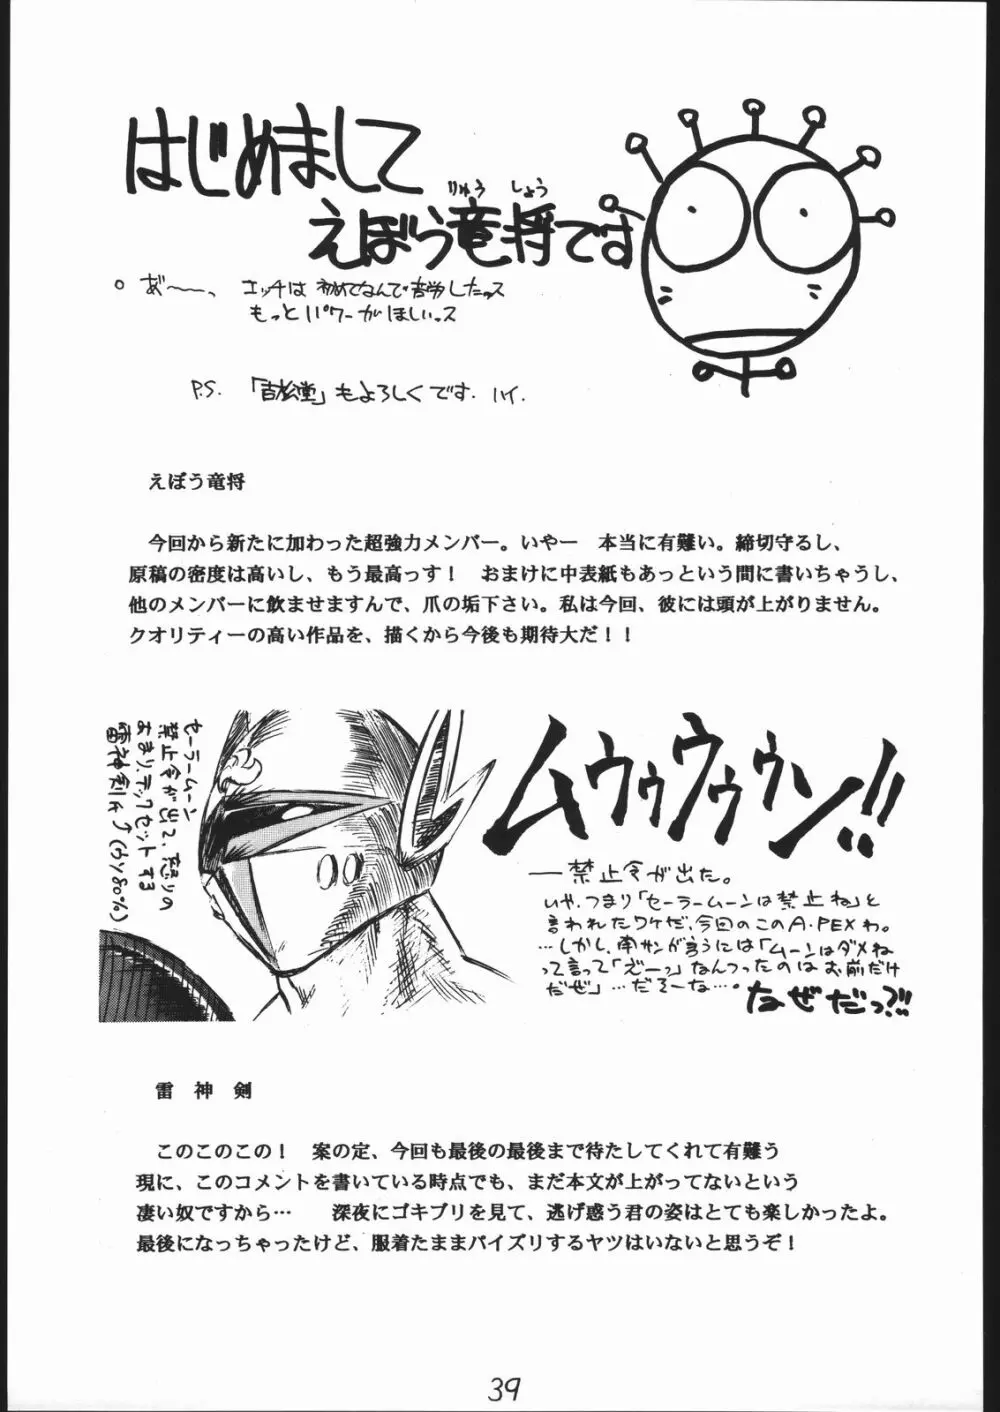 はじめまして
りゅう しょう
えぼう竜将です
。あ゛〜〜っ エッチは初めてなんで苦労したっス
もっとパワーがほしいっス
P.S. 「吉松堂」もよろしくです. ハイ.
えぼう竜将
今回から新たに加わった超強力メンバー。いやー　本当に有難い。締切守るし、
原稿の密度は高いし、もう最高っす！　おまけに中表紙もあっという間に書いちゃうし、
他のメンバーに飲ませますんで、爪の垢下さい。私は今回、彼には頭が上がりません。
クオリティーの高い作品を、描くから今後も期待大だ！！
セーラームーン
禁止令が出て、怒りの
あまり、テックセットする
雷神剣氏↑(ウソ80%)
ムウゥウゥゥン!!
—禁止令が出た。
いや、つまり「セーラームーンは禁止ね」と
言われたワケだ、今回のこのA・PEXわ。
…しかし、南サンが言うには「ムーンはダメね
って言って「えーっ」なんつったのはお前だけ
だぜ」…だそーな…。なぜだっ?!!
雷　神　剣
このこのこの！　案の定、今回も最後の最後まで待たしてくれて有難う
現に、このコメントを書いている時点でも、まだ本文が上がってないという
凄い奴ですから…　　深夜にゴキブリを見て、逃げ惑う君の姿はとても楽しかったよ。
最後になっちゃったけど、服着たままパイズリするヤツはいないと思うぞ！
39